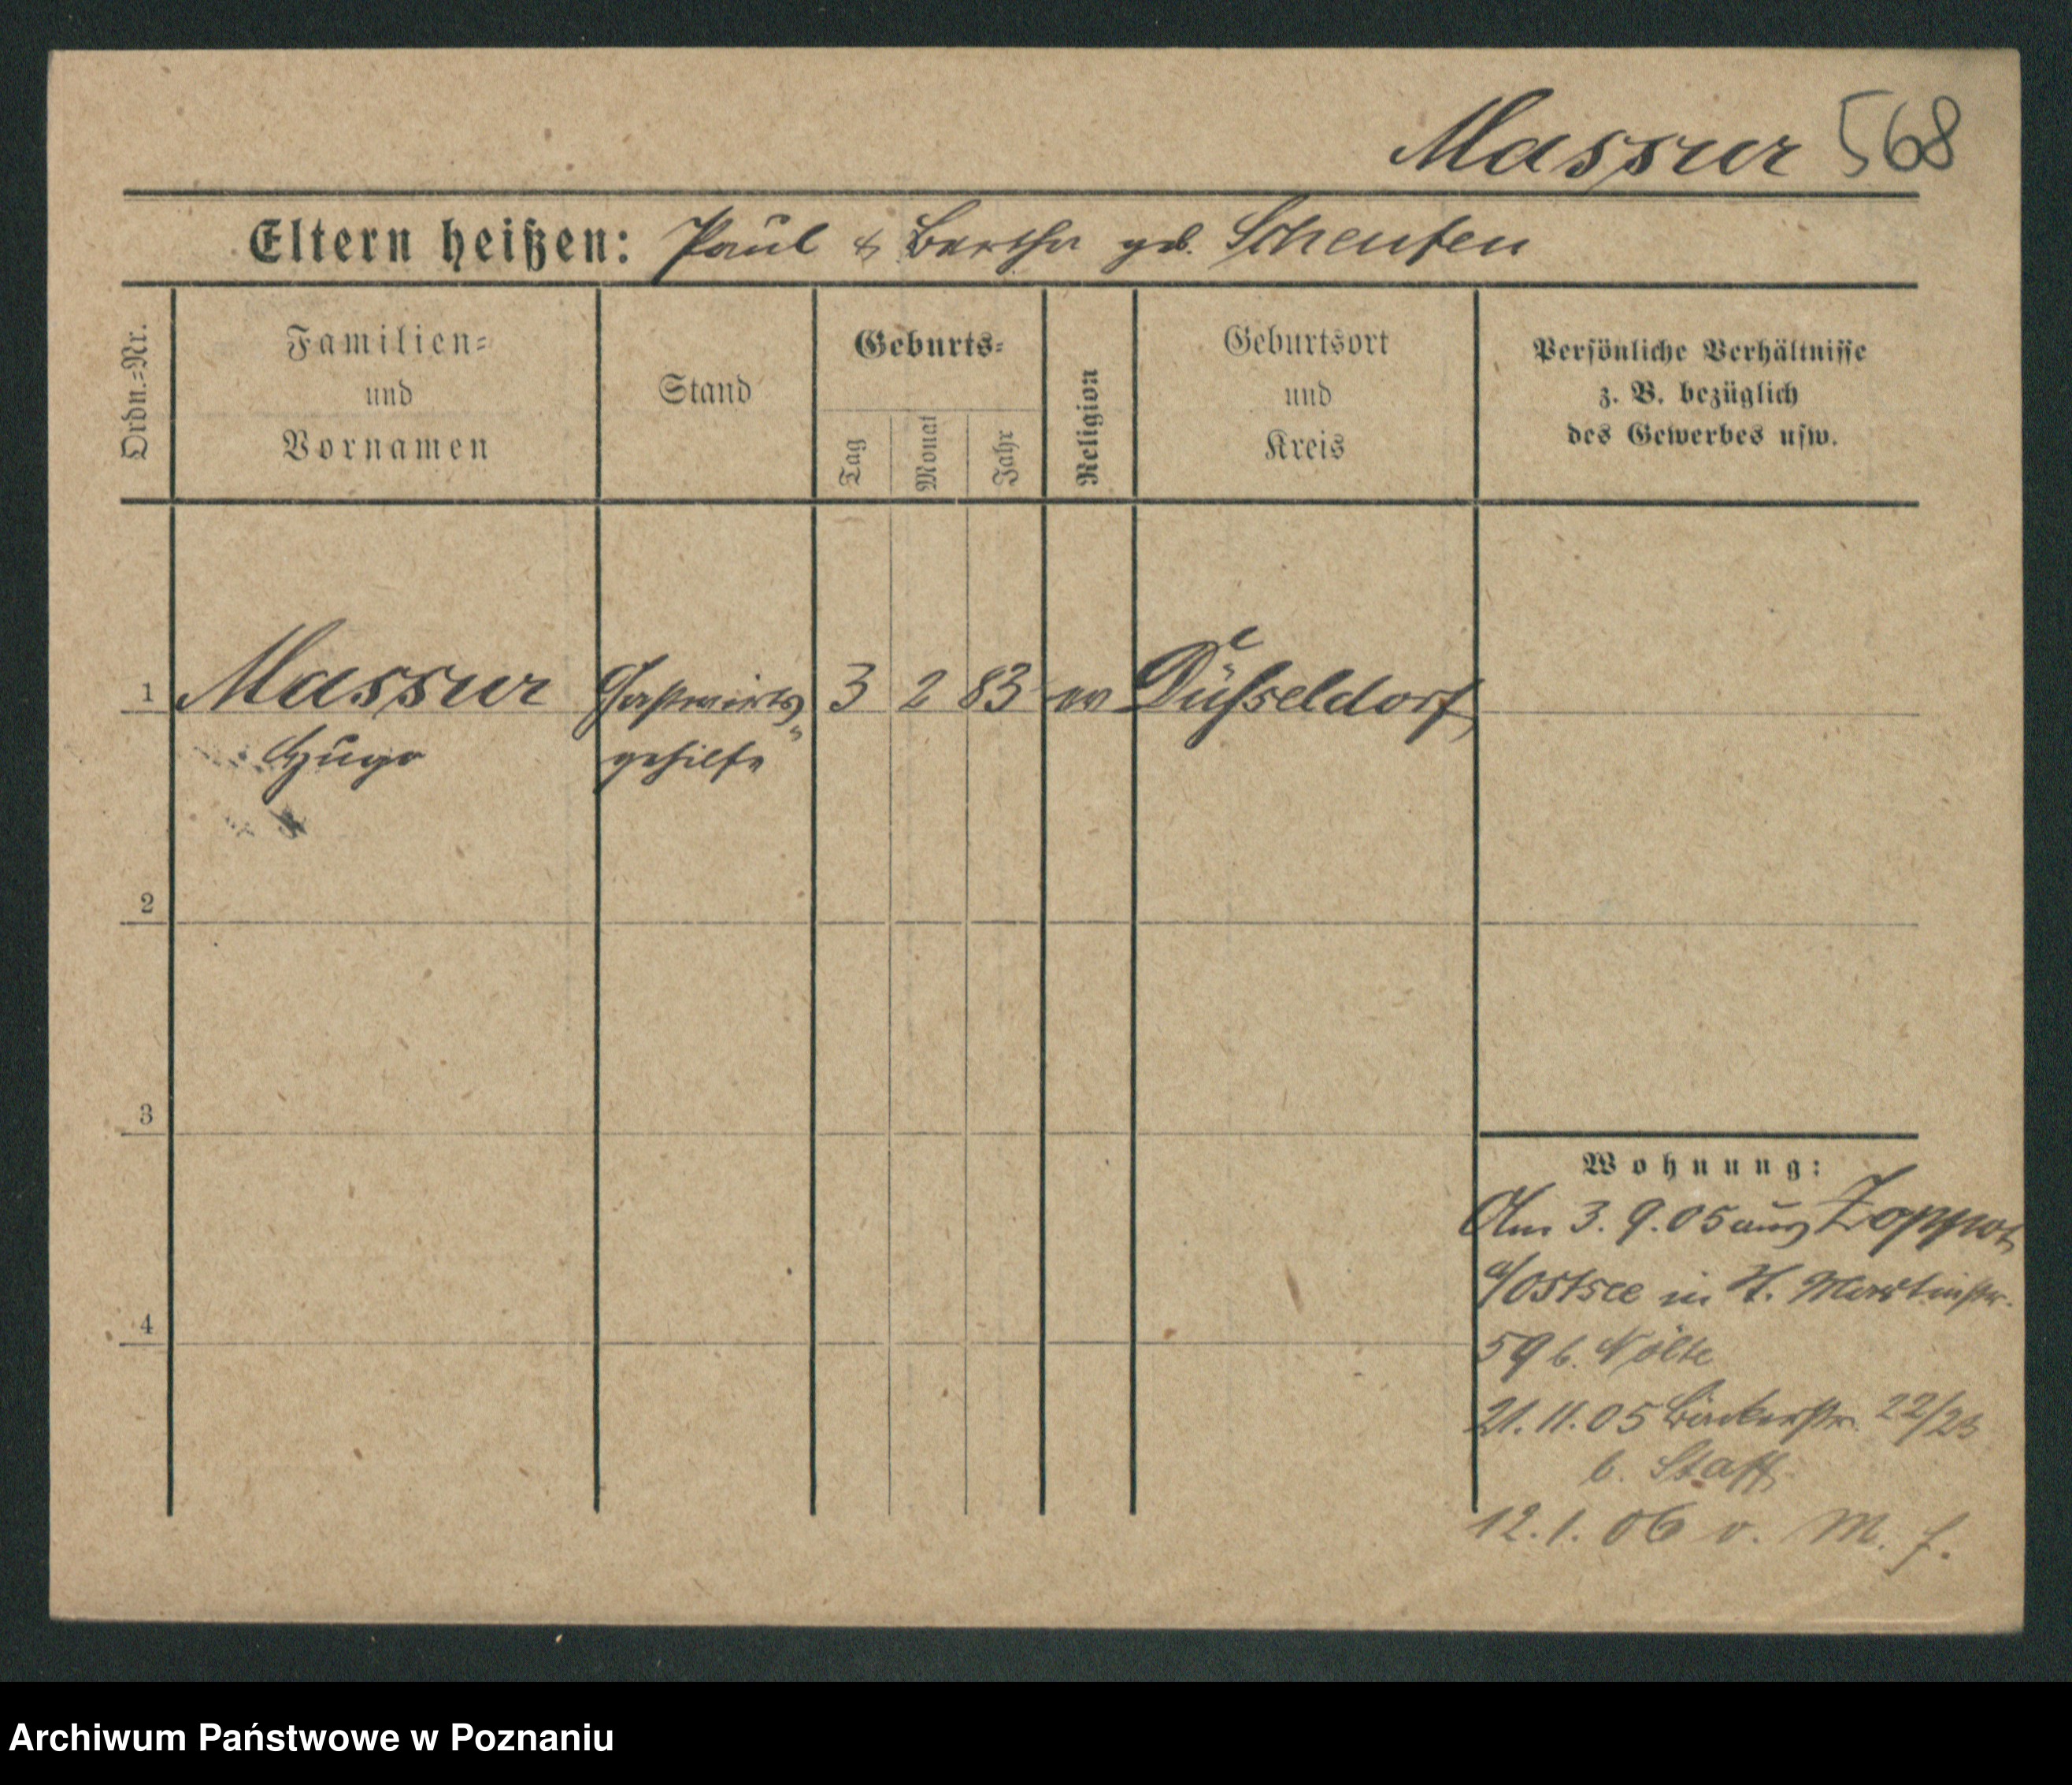 Massur 568
Eltern heißen: Paul & Bertha geb. Scheufen
Ordn.=Nr.
Familien=
und
Vornamen
Stand
Geburts=
Tag
Monat
Jahr
Religion
Geburtsort
und
Kreis
Persönliche Verhältnisse
z. B. bezüglich
des Gewerbes usw.
1 Massur Gastwirts 3 2 83 ev Düsseldorf
Hugo gehilfe
2
3
4
Wohnung:
Am 3. 9. 05 aus Zoppot
a/Ostsee in St. Martinstr.
59 b. Nölte
21. 11. 05 Bäckerstr. 22/23
b. Staff
12. 1. 06 v. M. f.
Archiwum Państwowe w Poznaniu